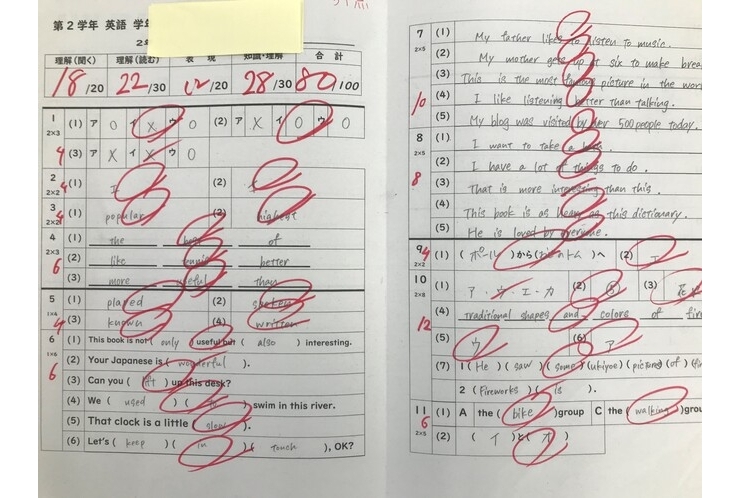 第2学年 英語 学年
理解(聞く) 理解(読む) 表 現 知識・理解 合 計
18/20 22/30 12/20 28/30 80/100
1 (1) ア O イ X ウ O (2) ア X イ O ウ O
2×3
4 (3) ア X イ X ウ O
2 4 (1) エ (2)
2×2
3 4 (1) popular (2) highest
2×2
4 (1) the best of
2×3 (2) like tennis better
6 (3) more useful than
5 (1) played (2) spoken
1×4
4 (3) known (4) written
6 (1) This book is not ( only ) useful but ( also ) interesting.
1×6
6 (2) Your Japanese is ( wonderful ).
(3) Can you ( lift ) up this desk?
(4) We ( used ) ( to ) swim in this river.
(5) That clock is a little ( slow ).
(6) Let's ( keep ) ( in ) ( touch ), OK?
7 (1) My father likes to listen to music.
2×5 (2) My mother gets up at six to make brea
(3) This is the most famous picture in the wor
10 (4) I like listening better than talking.
(5) My blog was visited by over 500 people today.
8 (1) I want to take a
2×5 (2) I have a lot of things to do.
8 (3) That is more interesting than this.
(4) This book is as heavy as this dictionary.
(5) He is loved by everyone.
9 4 (1) ( ポール )から( トム )へ (2) エ
2×2
10 (1) ア・ウ・エ・カ (2) (3)
2×8
(4) traditional shapes and colors of fir
12 (5) ウ (6) ア
(7) 1 ( He ) ( saw ) ( some ) (ukiyoe) (pictures) (of) (fi
2 ( Fireworks ) ( is ).
11 (1) A the ( bike )group C the ( walking )grou
6
2×5 (2) ( イ )と( オ )